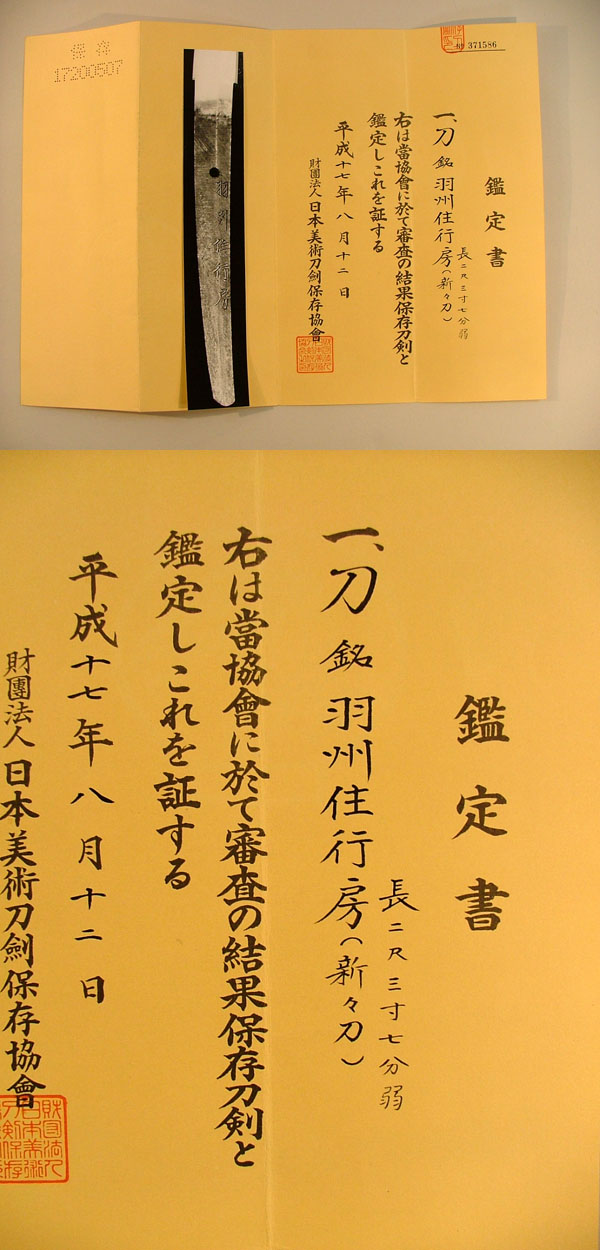 保存
17200507
371586
鑑定書
一、刀 銘 羽州住行房（新々刀）
長二尺三寸七分弱
右は當協會に於て審査の結果保存刀剣と
鑑定しこれを証する
平成十七年八月十二日
財團法人日本美術刀劍保存協會
羽州住行房
鑑定書
一、刀 銘 羽州住行房（新々刀）
長二尺三寸七分弱
右は當協會に於て審査の結果保存刀剣と
鑑定しこれを証する
平成十七年八月十二日
財團法人日本美術刀劍保存協會